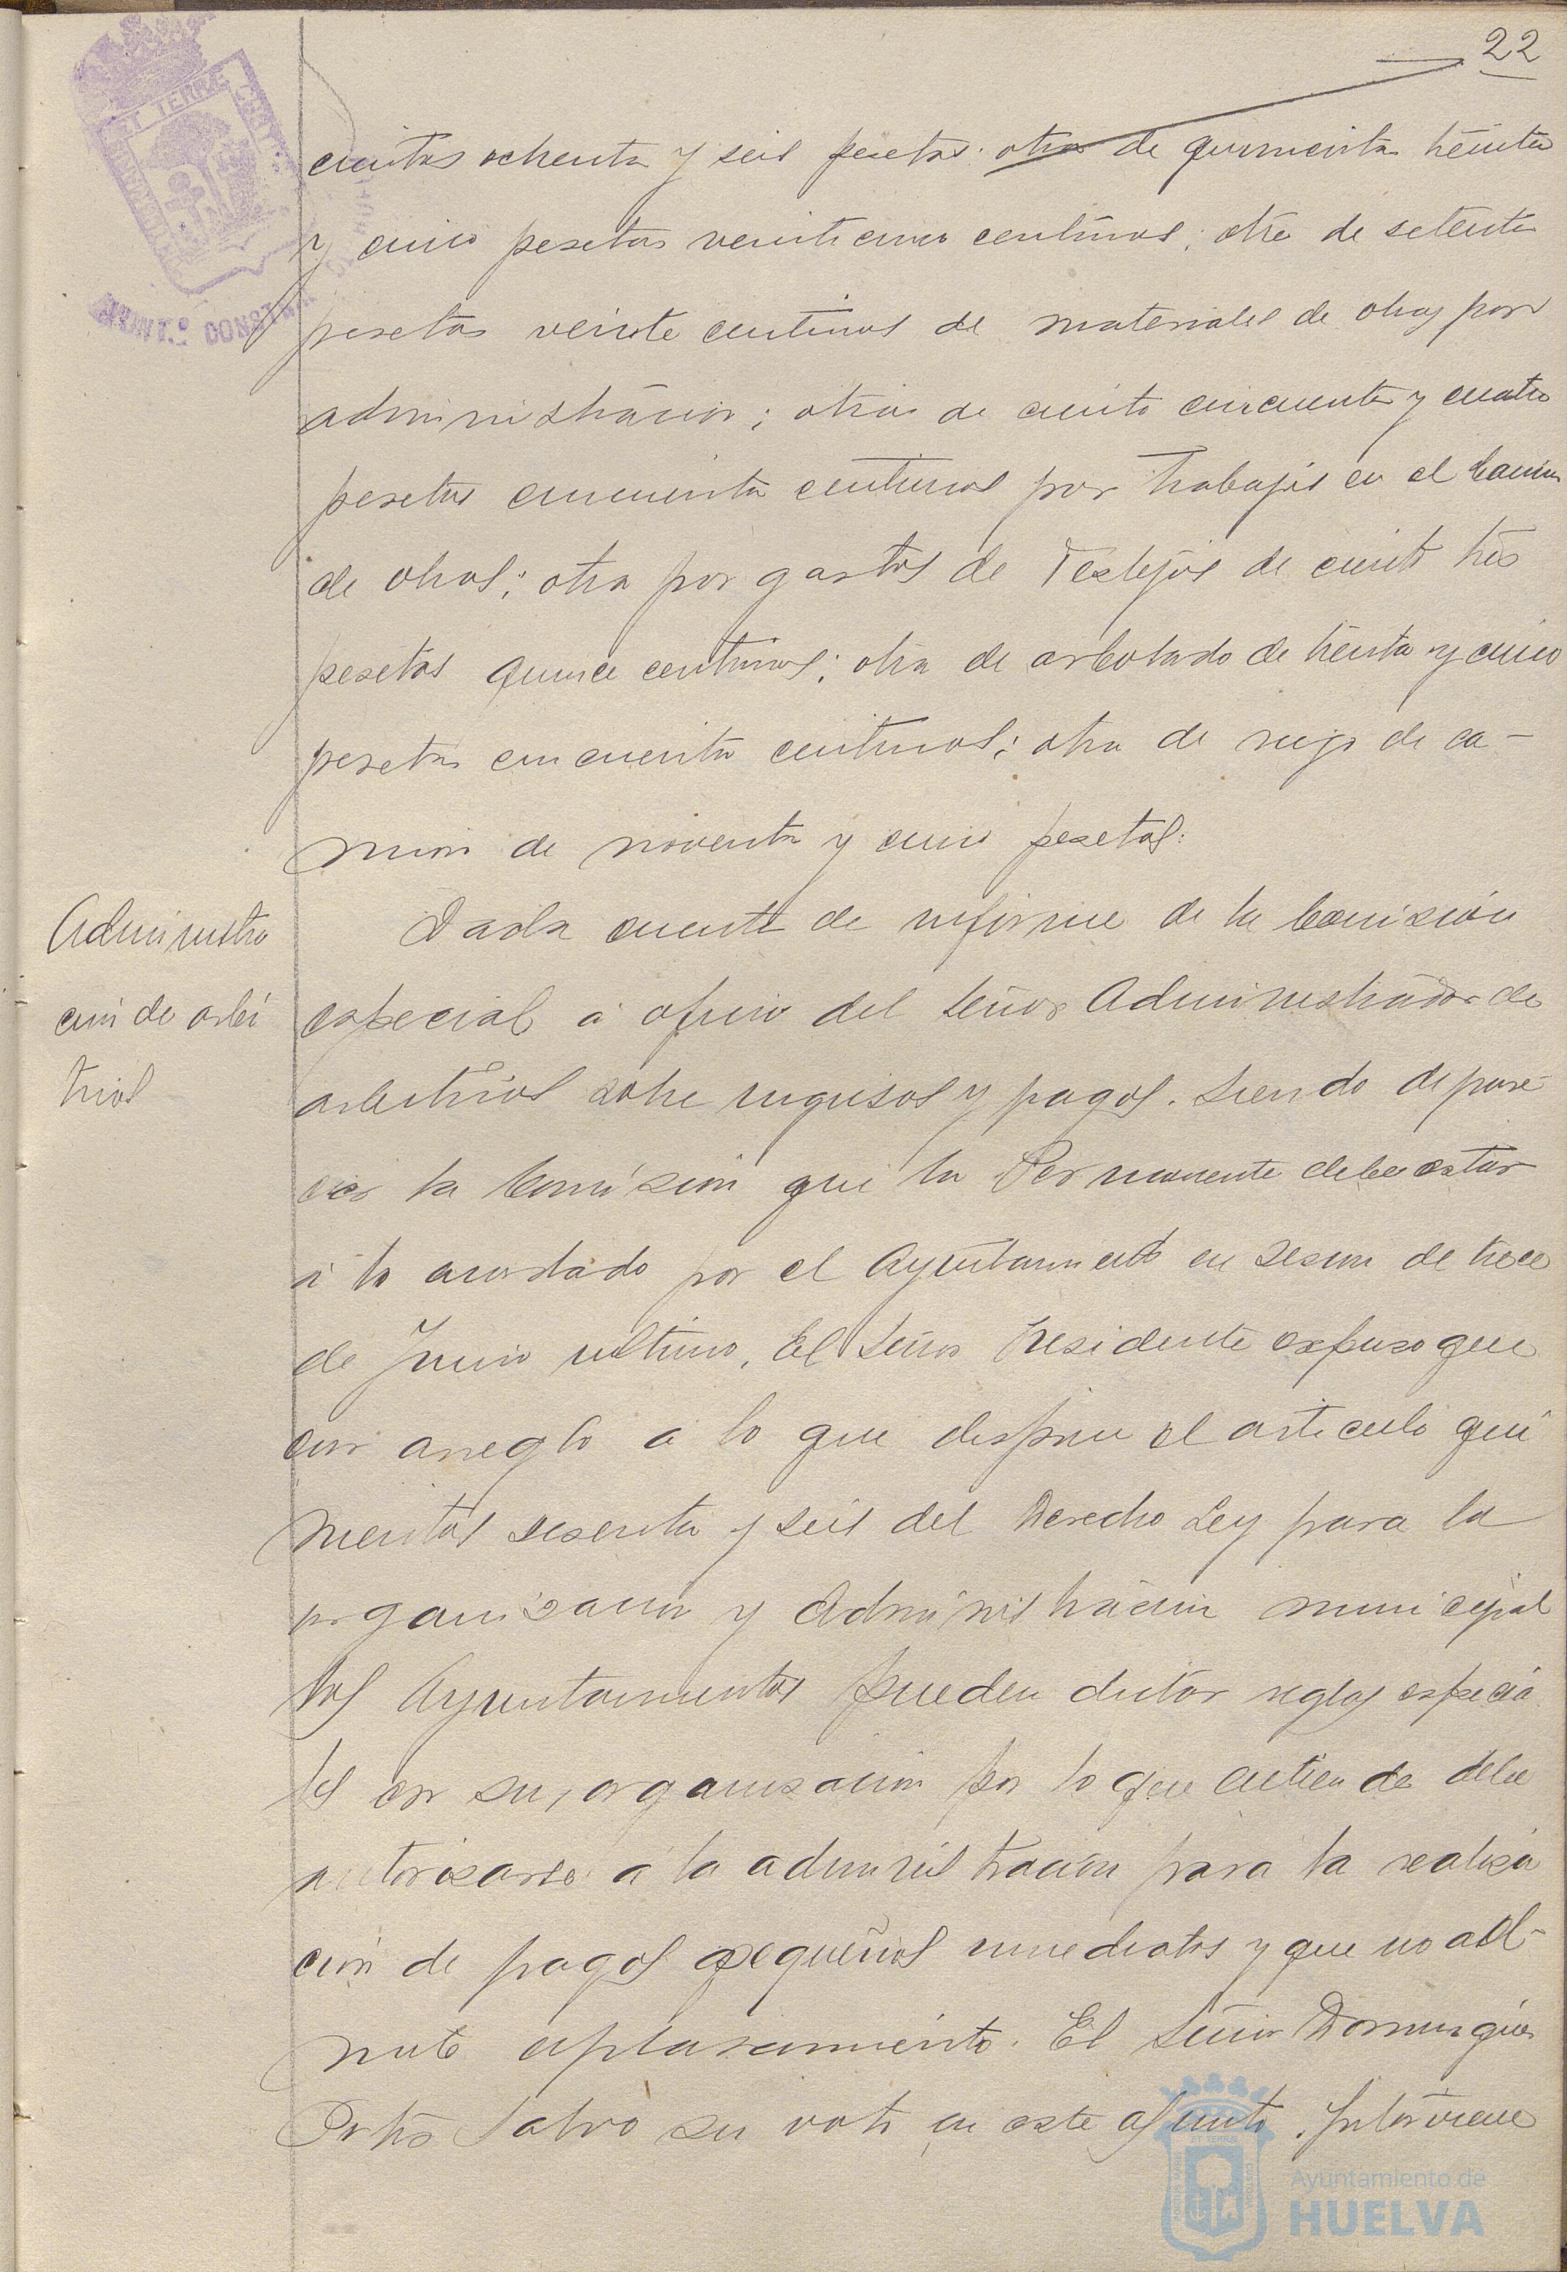 22
cientas ochenta y seis pesetas: otra de quinientas treinta
y cinco pesetas veinticinco centimos; otra de setenta
pesetas veinte centimos de materiales de obras por
administracion; otra de ciento cincuenta y cuatro
pesetas cincuenta centimos por trabajos en el camino
de obras; otra por gastos de Festejos de ciento tres
pesetas quince centimos; otra de arbolado de treinta y cinco
pesetas cincuenta centimos; otra de riego de ca-
mion de noventa y cinco pesetas.
Administra
cion de arbi
trios
Dada cuenta de informe de la Comision
especial a oficio del Señor Administrador de
arbitrios sobre ingresos y pagos. Siendo de pare-
cer la Comision que la Permanente debe estar
a lo acordado por el Ayuntamiento en sesion de trece
de Junio ultimo. El Señor Presidente expuso que
con arreglo a lo que dispone el articulo qui
nientos sesenta y seis del Derecho Ley para la
organizacion y Administracion municipal
los Ayuntamientos pueden dictar reglas especia
les con su organizacion por lo que entiende debe
autorizarse a la administracion para la realiza
cion de pagos pequeños inmediatos y que no ad-
mite aplazamiento. El Señor Dominguez
Ortiz salvo su voto en este asunto. Interviene
AYUNT.º CONST
ET TERRÆ
Ayuntamiento de
HUELVA